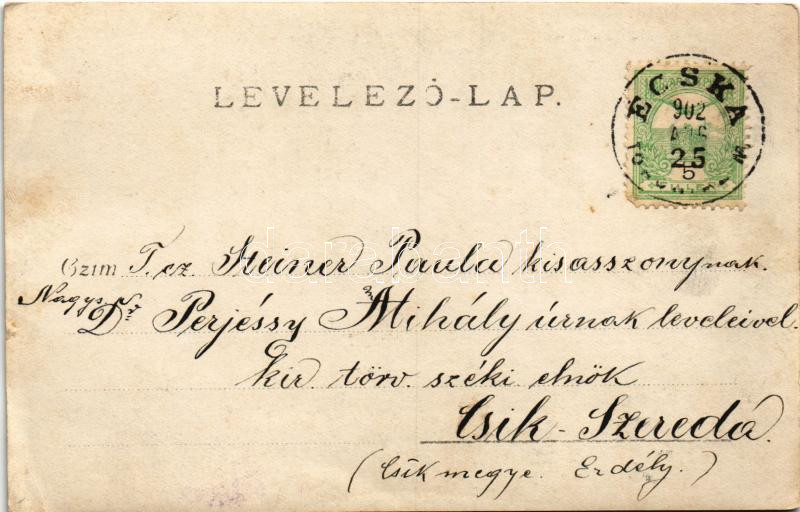 LEVELEZŐ-LAP.
ÉCSKA
902
AUG
25
5
Czim T. cz. Steiner Paula kisasszonynak.
Nagys. Dr Perjéssy Mihály úrnak leveleivel.
kir. törv. széki elnök
Csik-Szereda.
(Csík megye. Erdély.)